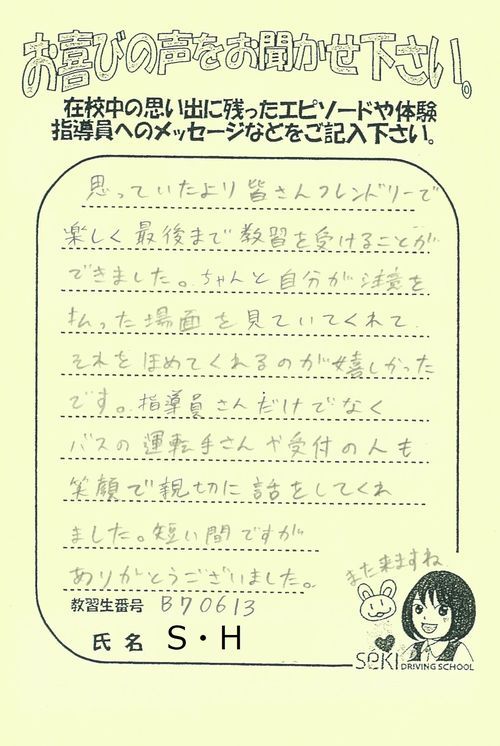 お喜びの声をお聞かせ下さい。
在校中の思い出に残ったエピソードや体験
指導員へのメッセージなどをご記入下さい。
思っていたより皆さんフレンドリーで
楽しく最後まで教習を受けることが
できました。ちゃんと自分が注意を
払った場面を見ていてくれて
それをほめてくれるのが嬉しかった
です。指導員さんだけでなく
バスの運転手さんや受付の人も
笑顔で親切に話をしてくれ
ました。短い間ですが
ありがとうございました。
また来ますね
教習生番号 B70613
氏名 S・H
SEKI DRIVING SCHOOL